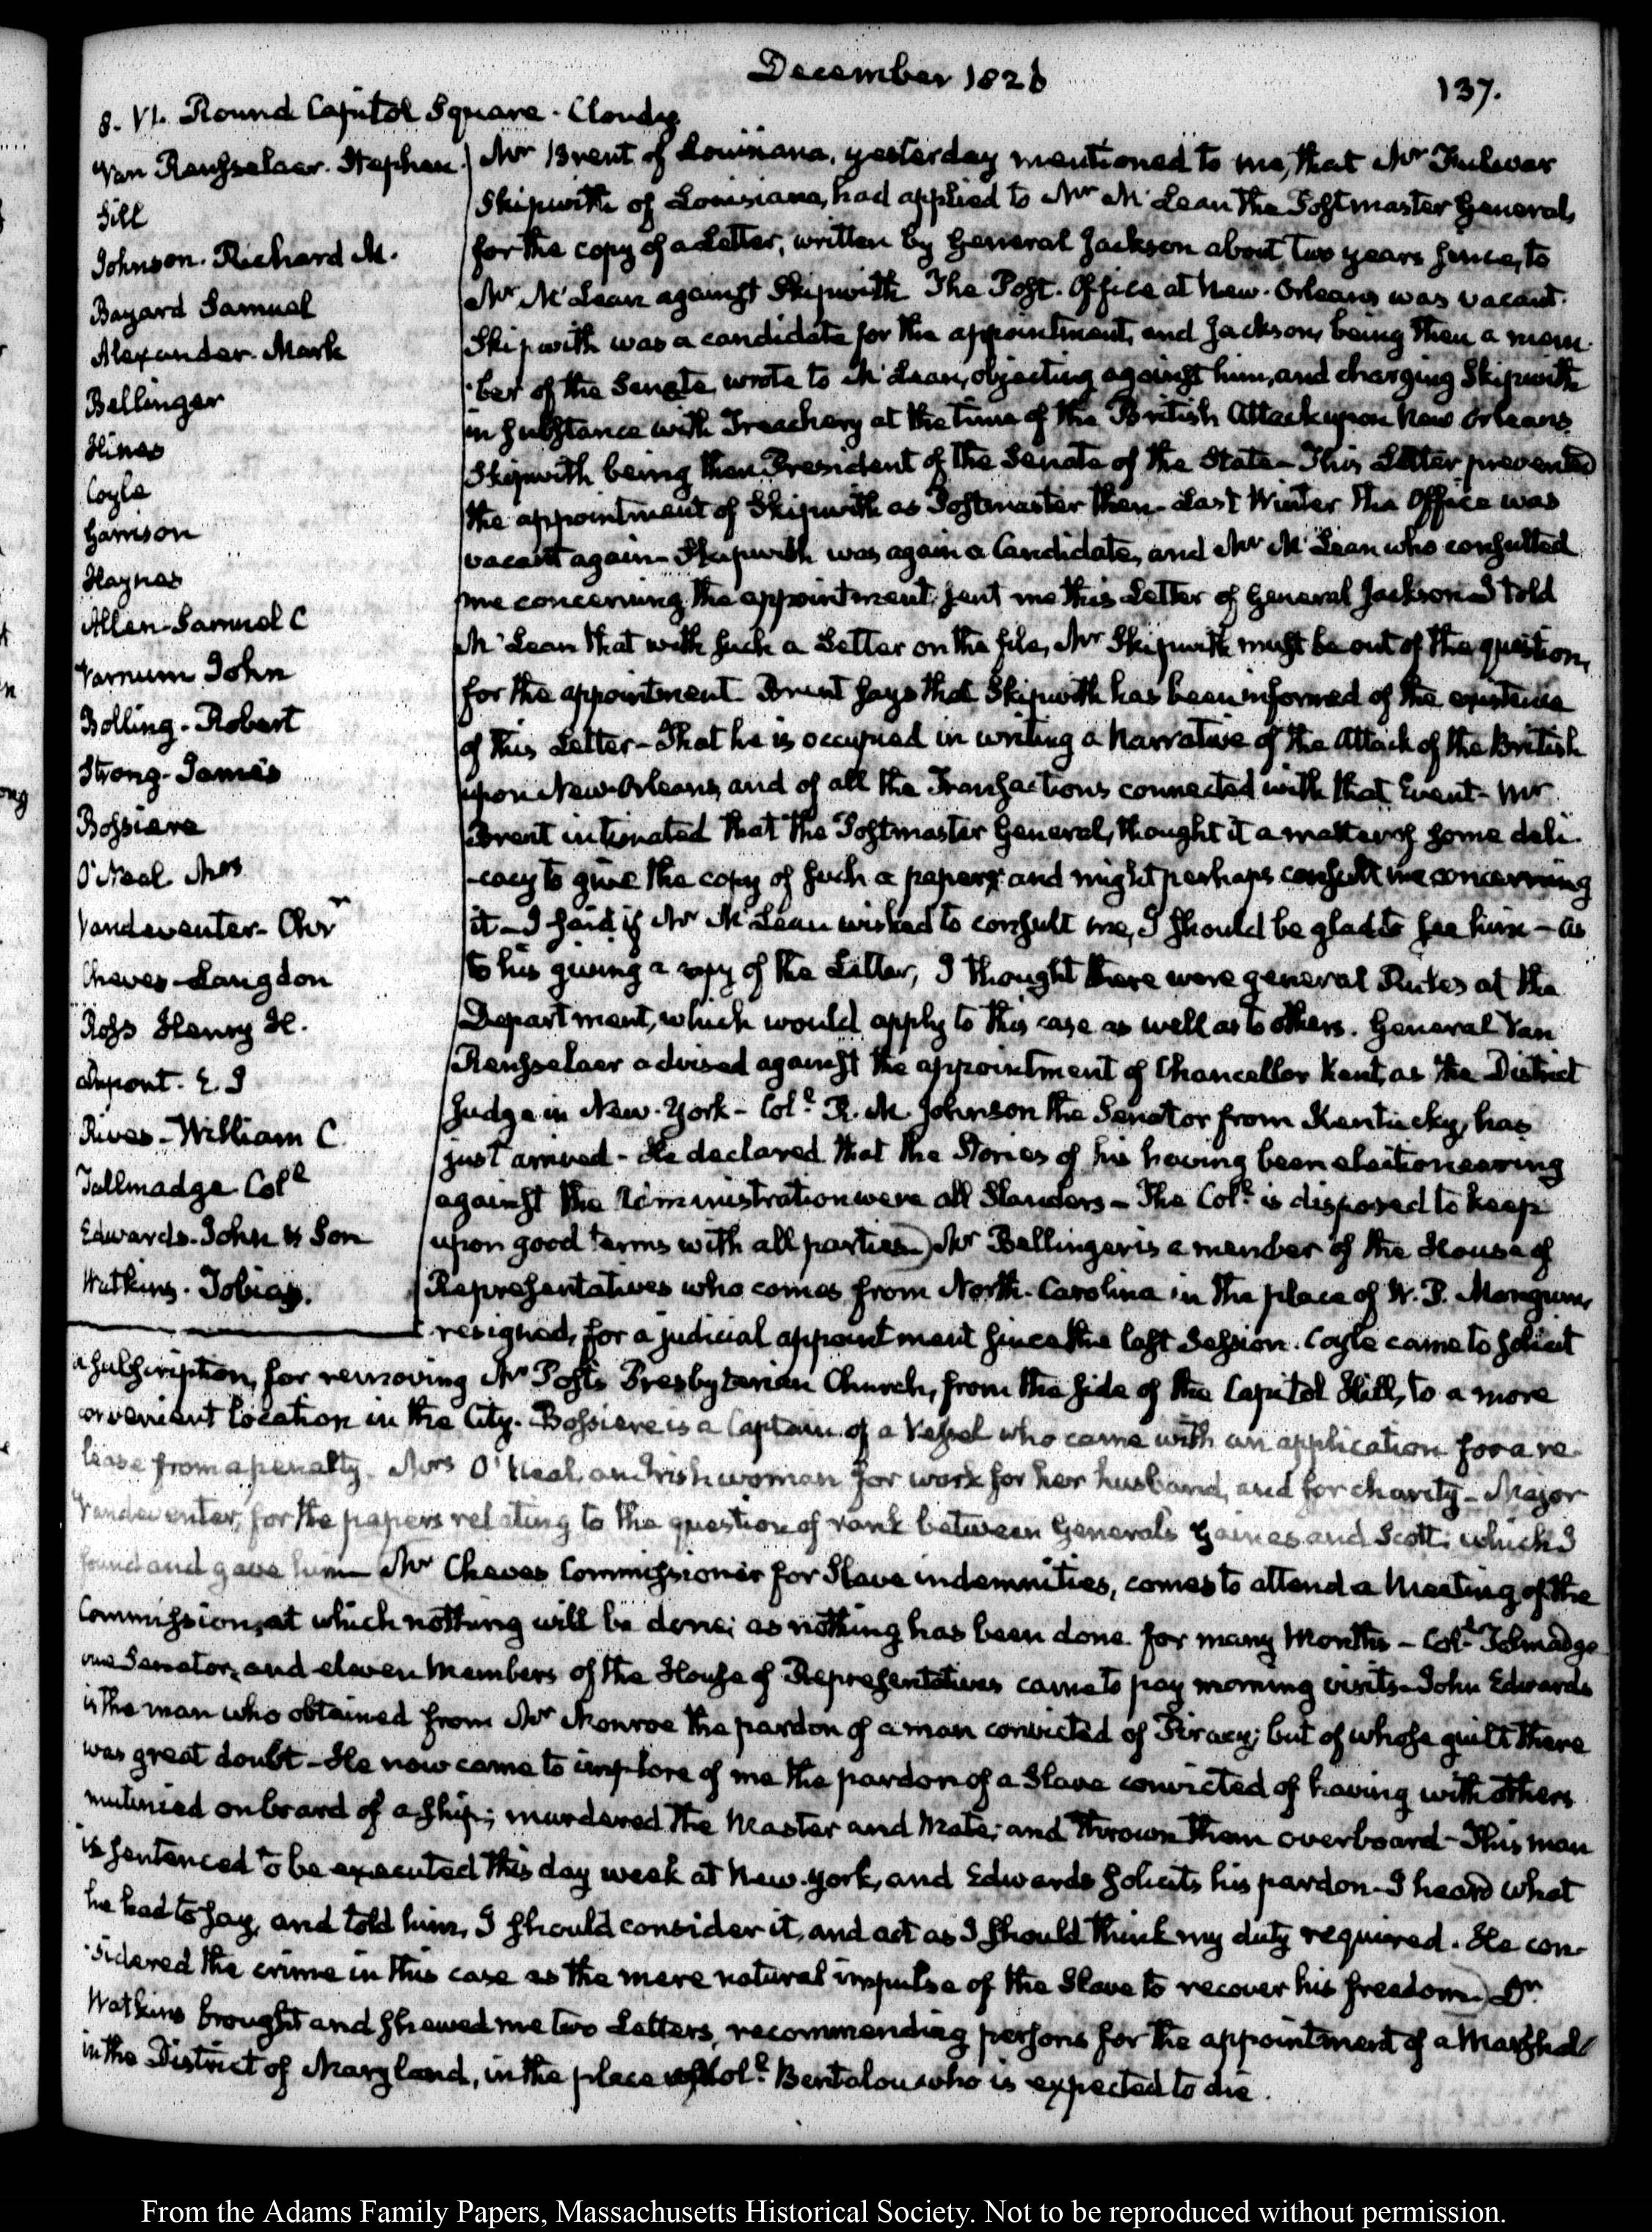 December 1826
137.
8. VI. Round Capitol Square. Cloudy
Van Rensselaer. Stephen.
Sill
Johnson. Richard M.
Bayard Samuel
Alexander. Mark
Bellinger
Hines
Coyle
Garrison
Haynes
Allen-Samuel C
Varnum John
Bolling-Robert
Strong-James
Bossiere
O'Neal Mrs
Vandeventer-Chr
Cheves-Langdon
Ross Henry H.
Dupont. E. I
Rives-William C.
Tallmadge Col.
Edwards-John & Son
Watkins. Tobias.
Mr Brent of Louisiana, yesterday mentioned to me, that Mr Fulwar
Skipwith of Louisiana, had applied to Mr McLean the Postmaster General,
for the copy of a Letter, written by General Jackson about two years since, to
Mr McLean against Skipwith The Post-Office at New-Orleans was vacant.
Skipwith was a candidate for the appointment, and Jackson, being then a mem-
-ber of the Senate, wrote to McLean, objecting against him, and charging Skipwith
in substance with Treachery at the time of the British Attack upon New Orleans.
Skipwith being then President of the Senate of the State-This Letter prevented
the appointment of Skipwith as Postmaster then-Last Winter the Office was
vacant again-Skipwith was again a Candidate, and Mr McLean who consulted
me concerning the appointment, sent me this Letter of General Jackson-I told
McLean that with such a Letter on the file, Mr Skipwith must be out of the question,
for the appointment. Brent says that Skipwith has been informed of the existence
of this Letter-That he is occupied in writing a Narrative of the Attack of the British
upon New-Orleans, and of all the Transactions connected with that Event-Mr
Brent intimated that the Postmaster General, thought it a matter of some deli-
-cacy to give the copy of such a paper; and might perhaps consult me concerning
it-I said if Mr McLean wished to consult me, I should be glad to see him-as
to his giving a copy of the Letter, I thought there were general Rules at the
Department, which would apply to this case as well as to others. General Van
Rensselaer advised against the appointment of Chancellor Kent, as the District
Judge in New-York-Col. R. M. Johnson the Senator from Kentucky, has
just arrived-He declared that the Stories of his having been electioneering
against the Administration were all Slanders-The Col. is disposed to keep
upon good terms with all parties.) Mr Bellinger is a member of the House of
Representatives who comes from North-Carolina in the place of W. P. Mangum,
resigned, for a judicial appointment since the last Session. Coyle came to solicit
a subscription, for removing Mr Post's Presbyterian Church, from the side of the Capitol Hill, to a more
convenient location in the City. Bossiere is a Captain of a Vessel who came with an application for a re-
lease from a penalty. Mrs O'Neal an Irish woman for work for her husband, and for charity-Major
Vandeventer, for the papers relating to the question of rank between Generals Gaines and Scott; which I
found and gave him-Mr Cheves Commissioner for Slave indemnities, comes to attend a Meeting of the
Commission, at which nothing will be done; as nothing has been done for many Months-Col. Tolmadge
one Senator, and eleven Members of the House of Representatives came to pay morning visits-John Edwards
is the man who obtained from Mr Monroe the pardon of a man convicted of Piracy; but of whose guilt there
was great doubt-He now came to implore of me the pardon of a Slave convicted of having with others
mutinied on board of a ship; murdered the Master and Mate; and thrown them overboard-This man
is sentenced to be executed this day week at New-York, and Edwards solicits his pardon-I heard what
he had to say, and told him, I should consider it, and act as I should think my duty required. He con-
-sidered the crime in this case as the mere natural impulse of the Slave to recover his freedom.) Dr
Watkins brought and shewed me two Letters, recommending persons for the appointment of a Marshal
in the District of Maryland, in the place of Col. Bentalou who is expected to die.
From the Adams Family Papers, Massachusetts Historical Society. Not to be reproduced without permission.